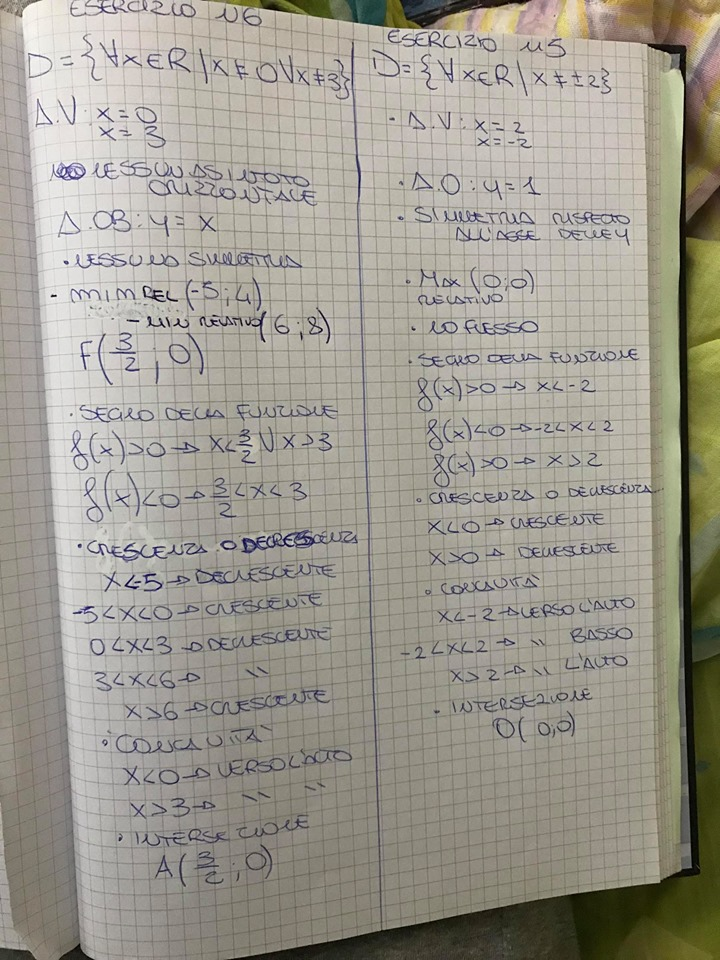 ESERCIZIO N6
D = {∀x∈R | x ≠ 0 ∨ x ≠ 3}
A.V: x = 0
x = 3
NESSUN ASINTOTO
ORIZZONTALE
A.OB: y = x
• NESSUNA SIMMETRIA
- MIN REL (-5; 4)
- MIN RELATIVO (6; 8)
F(3/2; 0)
• SEGNO DELLA FUNZIONE
f(x)>0 → x<3/2 V x>3
f(x)<0 → 3/2<x<3
• CRESCENZA O DECRESCENZA
x<-5 → DECRESCENTE
-5<x<0 → CRESCENTE
0<x<3 → DECRESCENTE
3<x<6 → "
x>6 → CRESCENTE
• CONCAVITA'
x<0 → VERSO L'ALTO
x>3 → " "
• INTERSEZIONE
A(3/2; 0)
ESERCIZIO N5
D = {∀x∈R | x ≠ ±2}
• A.V: x = 2
x = -2
• A.O: y = 1
• SIMMETRIA RISPETTO
ALL'ASSE DELLE Y
• MAX (0;0)
RELATIVO
• NO FLESSO
• SEGNO DELLA FUNZIONE
f(x)>0 → x<-2
f(x)<0 → -2<x<2
f(x)>0 → x>2
• CRESCENZA O DECRESCENZA
x<0 → CRESCENTE
x>0 → DECRESCENTE
• CONCAVITA'
x<-2 → VERSO L'ALTO
-2<x<2 → " BASSO
x>2 → " L'ALTO
• INTERSEZIONE
O(0,0)